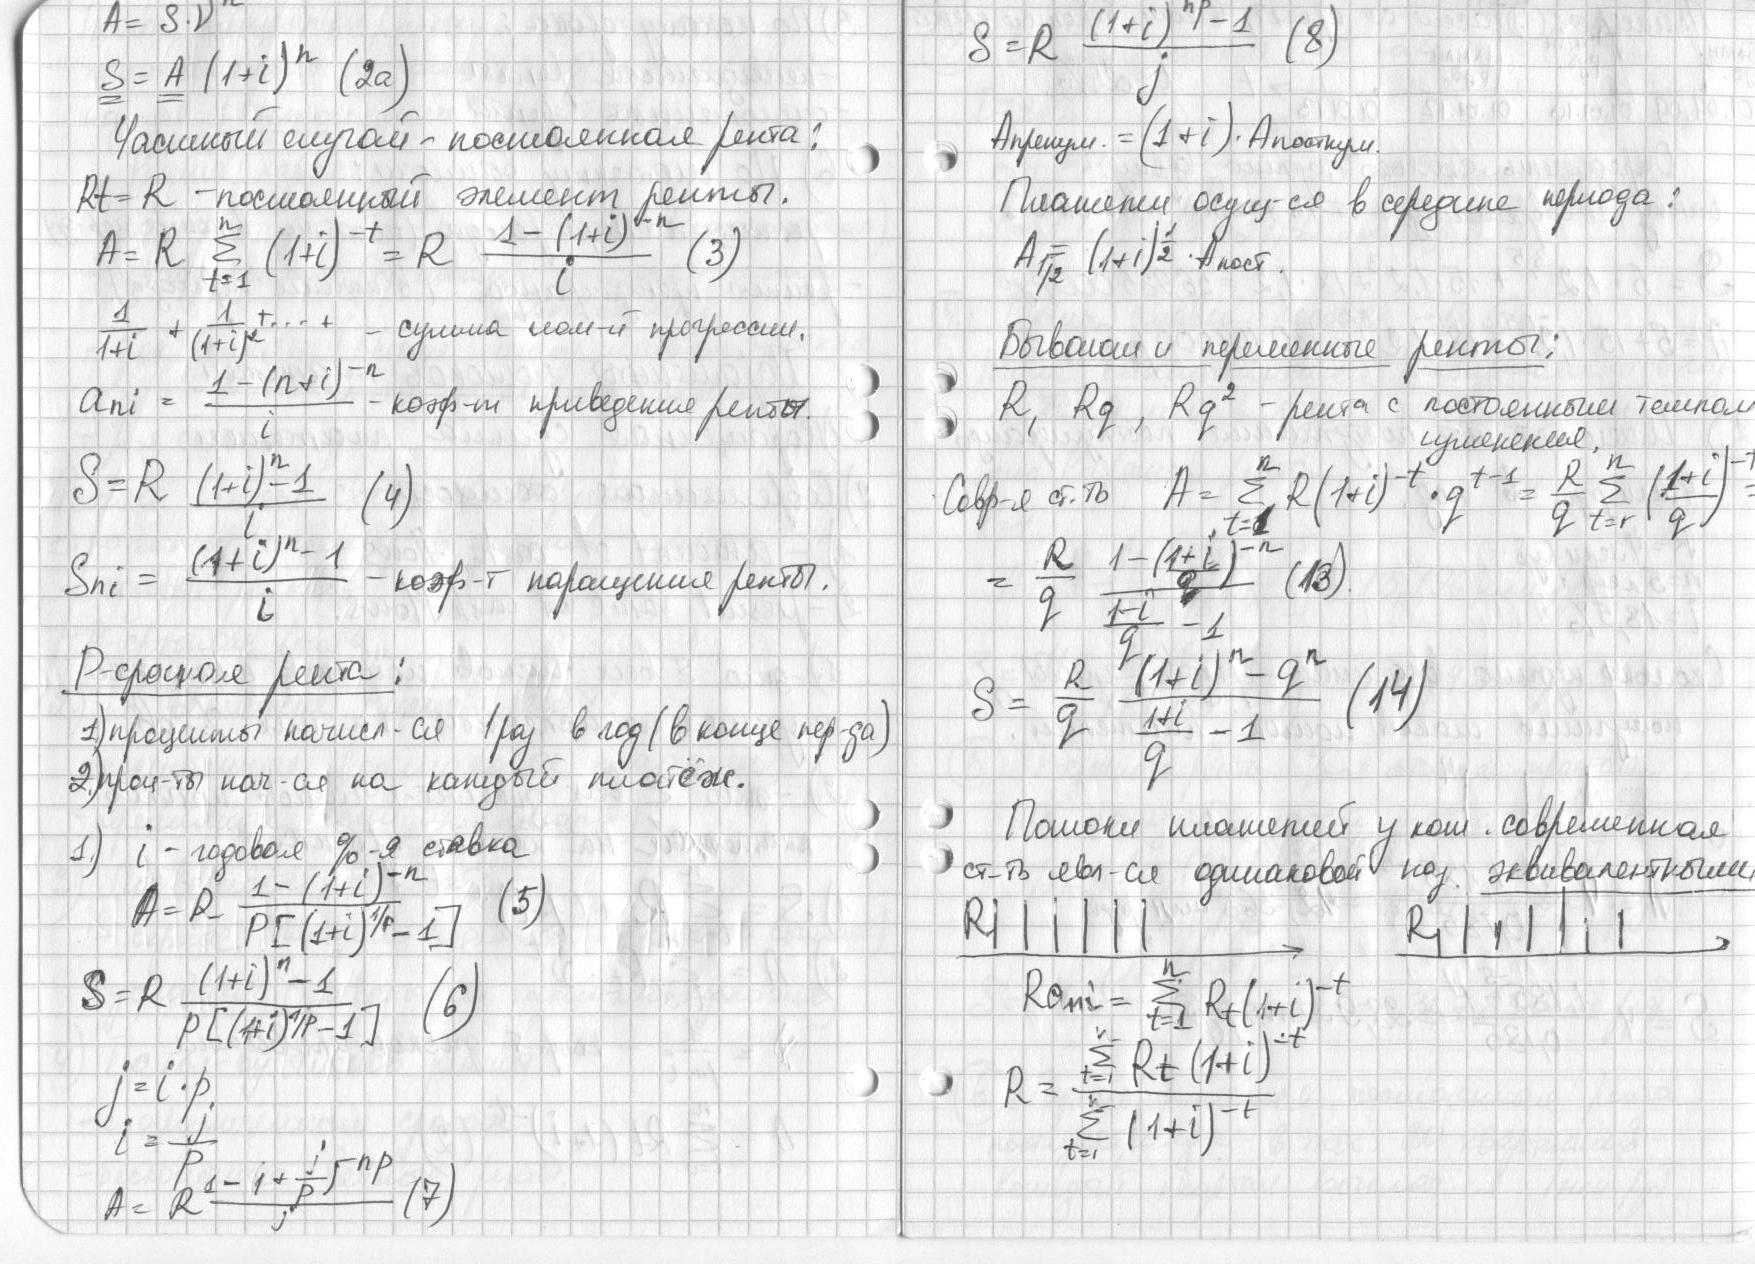 A = S·Vⁿ
S = A (1+i)ⁿ (2а)
Частный случай - постоянная рента:
Rt = R - постоянный элемент ренты.
A = R Σ_{t=1}^{n} (1+i)^{-t} = R (1-(1+i)^{-n})/i (3)
1/(1+i) + 1/(1+i)² + ... + - сумма геом-й прогрессии.
ani = (1-(n+i)^{-n})/i - коэф-т приведения ренты.
S = R ((1+i)ⁿ-1)/i (4)
Sni = ((1+i)ⁿ-1)/i - коэф-т наращения ренты.
P-срочная рента:
1) проценты начисл-ся 1 раз в год (в конце пер-да)
2) проц-ты нач-ся на каждый платёж.
1.) i - годовая %-я ставка
A = R (1-(1+i)^{-n})/(P[(1+i)^{1/P}-1]) (5)
S = R ((1+i)ⁿ-1)/(P[(1+i)^{1/P}-1]) (6)
j = i·p.
i = j/P
A = R (1-1+j/P)^{-np}/j (7)
S = R ((1+i)^{np}-1)/j (8)
Aпренум. = (1+i)·Aпостнум.
Платежи осущ-ся в середине периода:
A_{1/2} = (1+i)^{1/2}·Aпост.
Бывают и переменные ренты:
R, Rq, Rq² - рента с постоянным темпом
изменения.
Совр-я ст-ть A = Σ_{t=1}^{n} R(1+i)^{-t}·q^{t-1} = R/q Σ_{t=1}^{n} ((1+i)/q)^{-t} =
= R/q (1-((1+i)/q)^{-n})/((1-i)/q - 1) (13).
S = R/q ((1+i)ⁿ-qⁿ)/((1+i)/q - 1) (14)
Потоки платежей у кот. современная
ст-ть явл-ся одинаковой наз. эквивалентными
R R
Rani = Σ_{t=1}^{n} Rt(1+i)^{-t}
R = Σ_{t=1} Rt (1+i)^{-t} / Σ_{t=1} (1+i)^{-t}